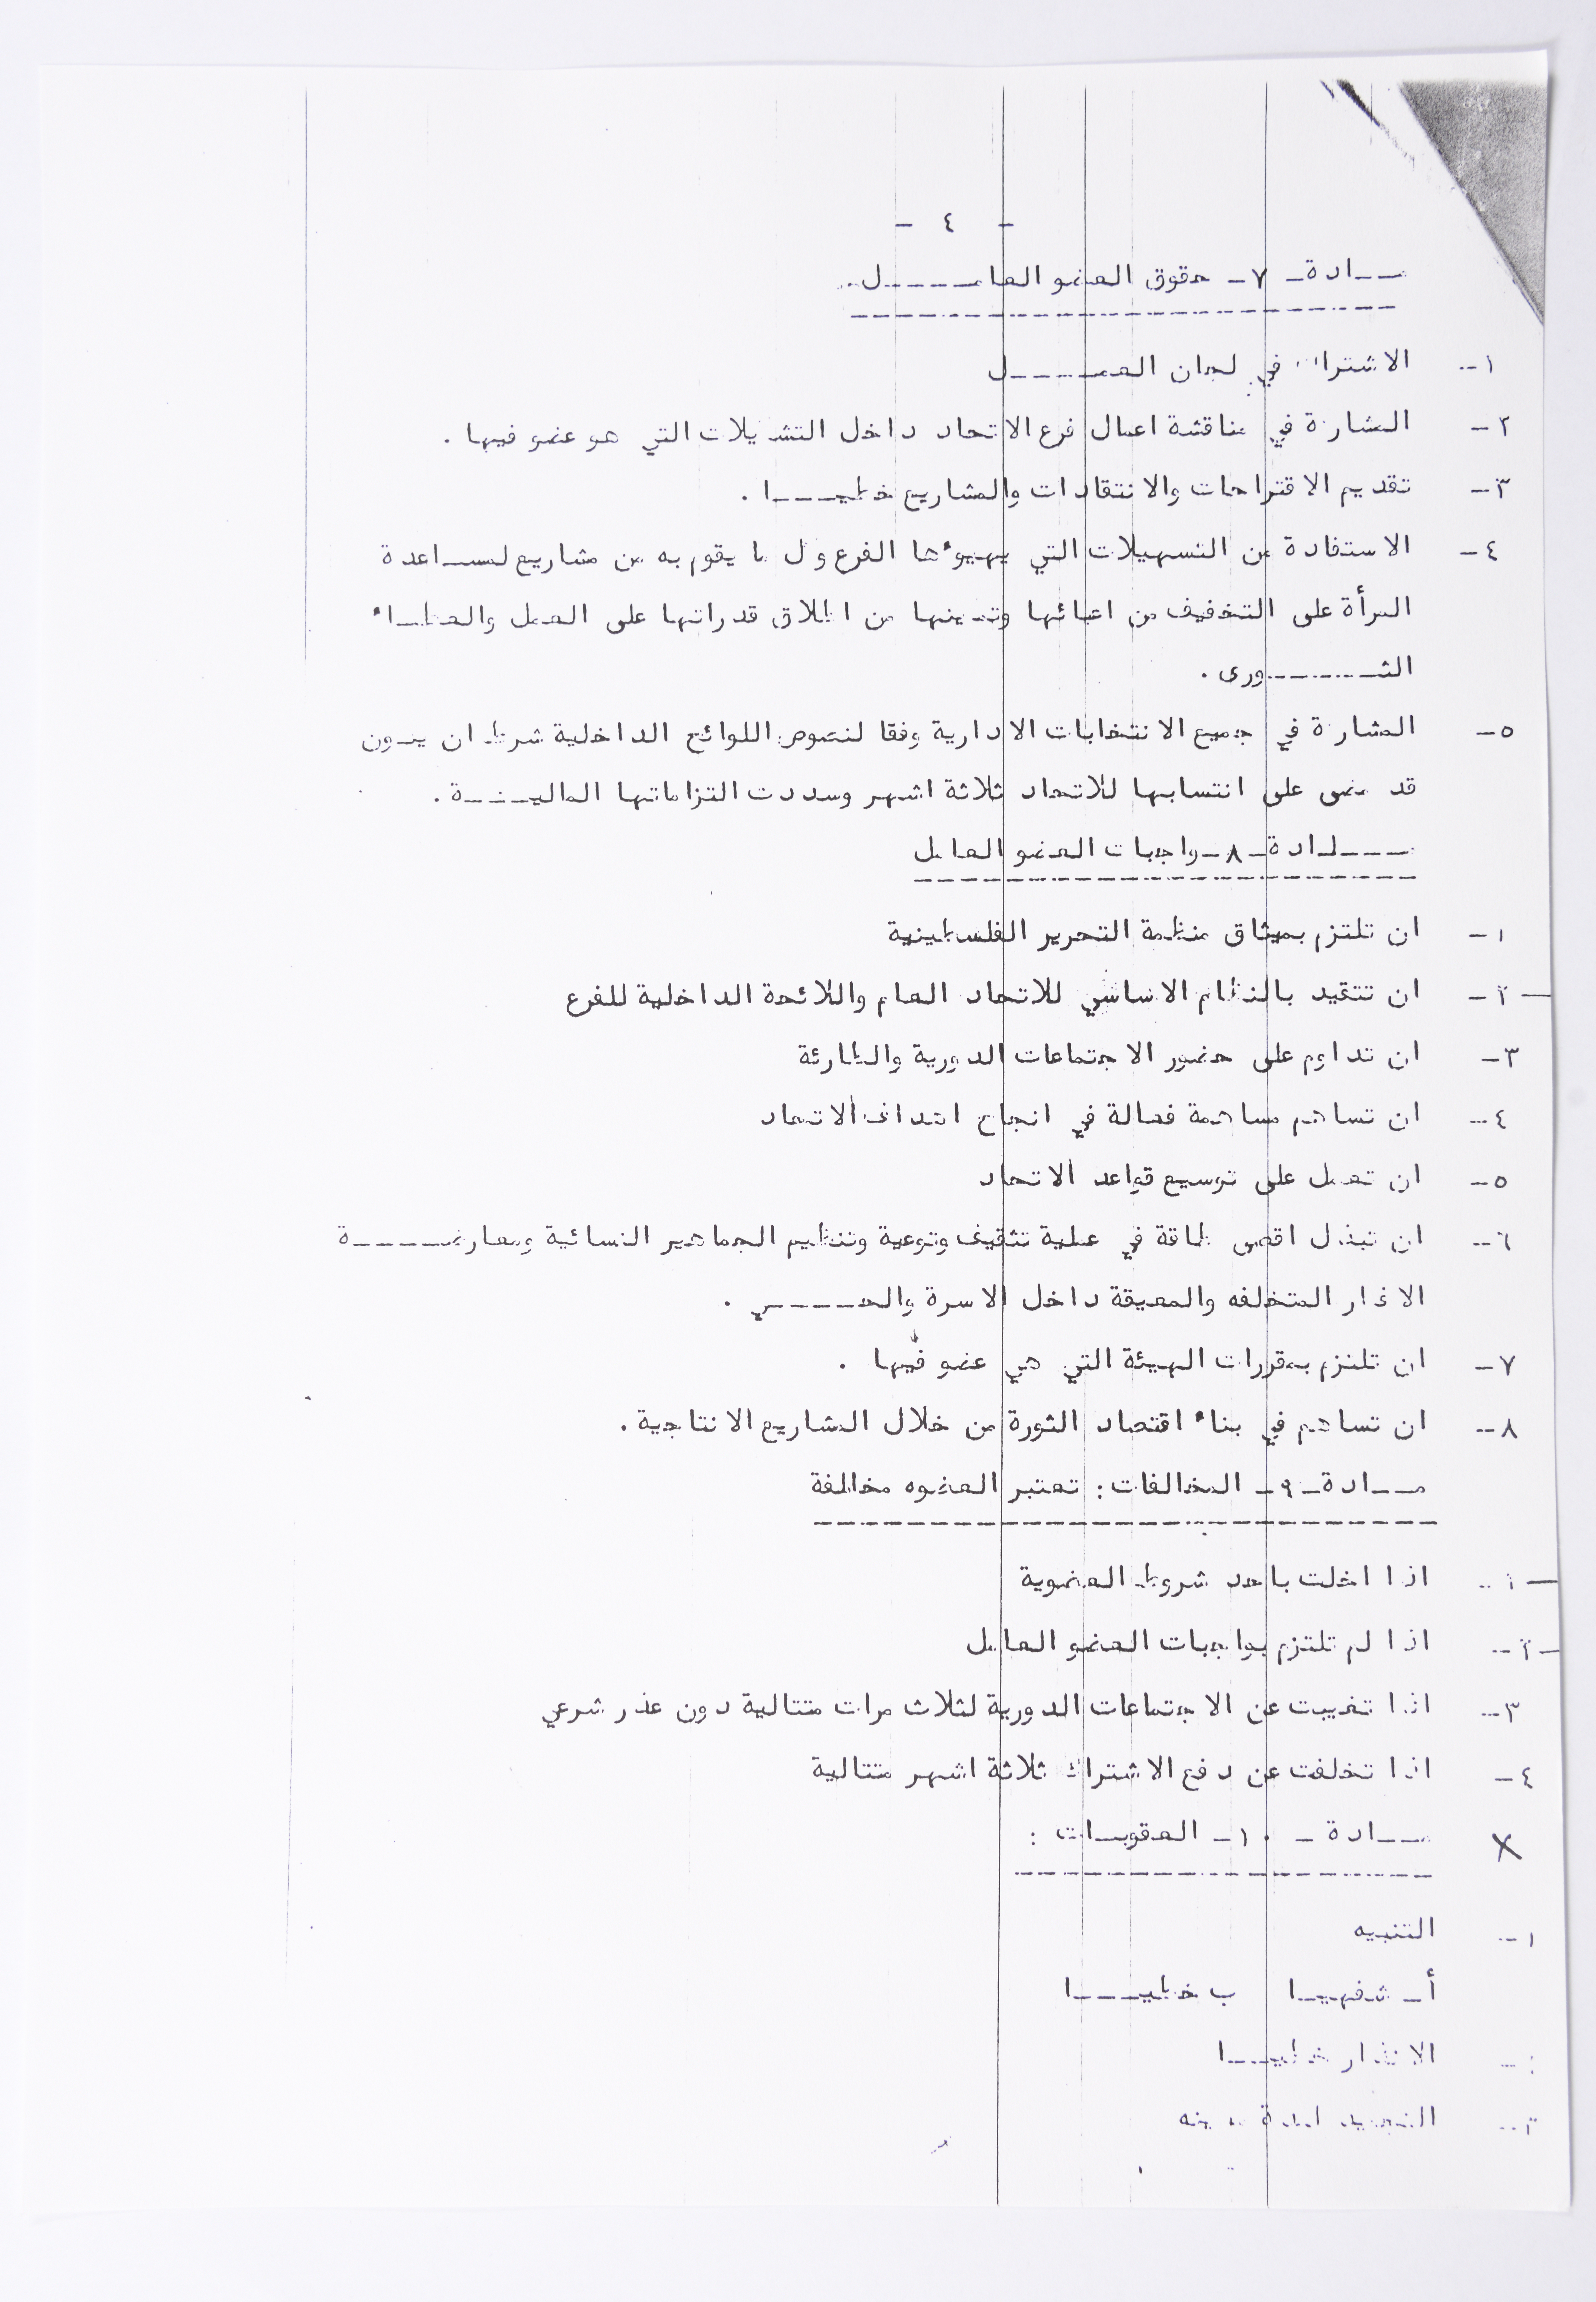 - ٤ -
مــادة ـ ٧ ـ حقوق العضو العامــــــل.
١- الاشتراك في لجان العمــــــل
٢- المشاركة في مناقشة اعمال فرع الاتحاد داخل التشكيلات التي هو عضو فيها .
٣- تقديم الاقتراحات والانتقادات والمشاريع خطيــــا .
٤- الاستفادة من التسهيلات التي يهيوءها الفرع وكل ما يقوم به من مشاريع لمســاعدة
المرأة على التخفيف من اعبائها وتمكينها من اطلاق قدراتها على العمل والعطــاء
الثــــــــورى .
٥- المشاركة في جميع الانتخابات الادارية وفقا لنصوص اللوائح الداخلية شرط ان يكــون
قد مضى على انتسابها للاتحاد ثلاثة اشهر وسددت التزاماتها الماليــــة .
مــــادة ـ ٨ ـ واجبات العضو العامل
١- ان تلتزم بميثاق منظمة التحرير الفلسطينية
٢- ان تتقيد بالنظام الاساسي للاتحاد العام واللائحة الداخلية للفرع
٣- ان تداوم على حضور الاجتماعات الدورية والطارئة
٤- ان تساهم مساهمة فعالة في انجاح اهداف الاتحاد
٥- ان تعمل على توسيع قواعد الاتحاد
٦- ان تبذل اقصى طاقة في عملية تثقيف وتوعية وتنظيم الجماهير النسائية ومعارضـــــة
الافكار المتخلفه والمعيقة داخل الاسرة والحـــــي .
٧- ان تلتزم بمقررات الهيئة التي هي عضو فيها .
٨- ان تساهم في بناء اقتصاد الثورة من خلال المشاريع الانتاجية .
مــادة ـ ٩ ـ المخالفات : تعتبر العضوه مخالفة
١- اذا اخلت باحد شروط العضوية
٢- اذا لم تلتزم بواجبات العضو العامل
٣- اذا تغيبت عن الاجتماعات الدورية لثلاث مرات متتالية دون عذر شرعي
٤- اذا تخلفت عن دفع الاشتراك ثلاثة اشهر متتالية
X مــادة ـ ١٠ ـ العقوبــات :
١- التنبيه
أ ـ شفهيــا ب خطيــــا
٢- الانذار خطيــا
٣- التجميد لمدة معينه